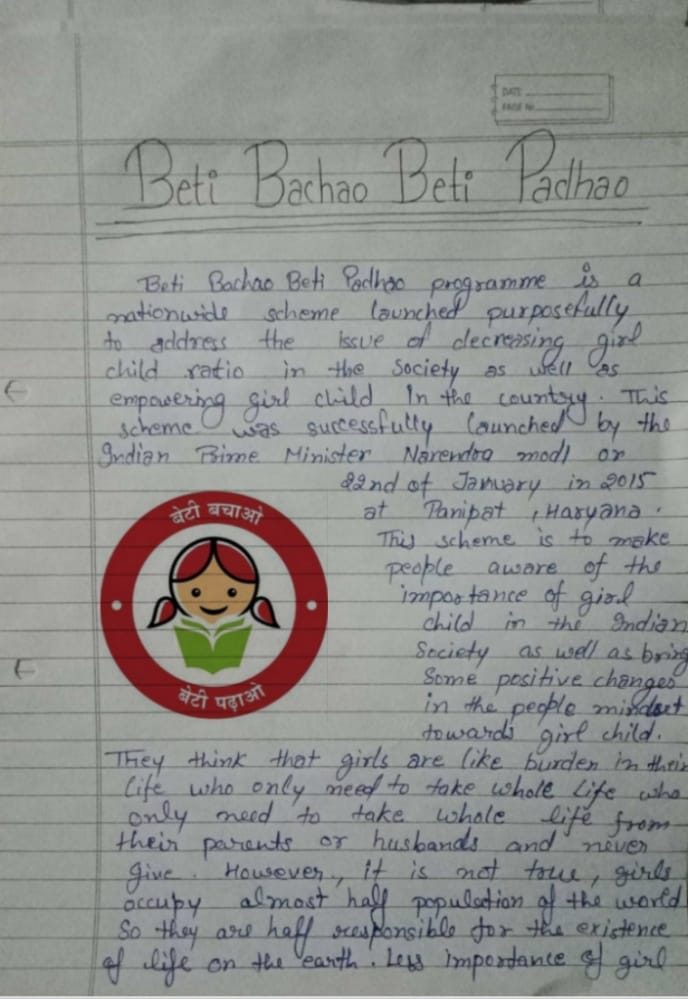 DATE
PAGE No
Beti Bachao Beti Padhao
Beti Bachao Beti Padhao programme is a
nationwide scheme launched purposefully
to address the issue of decreasing girl
child ratio in the society as well as
empowering girl child in the country. This
scheme was successfully launched by the
Indian Prime Minister Narendra modi on
22nd of January in 2015
at Panipat, Haryana.
This scheme is to make
people aware of the
importance of girl
child in the Indian
Society as well as bring
Some positive changes
in the people mindset
towards girl child.
बेटी बचाओ
बेटी पढ़ाओ
They think that girls are like burden in their
life who only need to take whole life who
only need to take whole life from
their parents or husbands and never
give. However, it is not true, girls
occupy almost half population of the world
So they are half responsible for the existence
of life on the earth. Less importance of girl